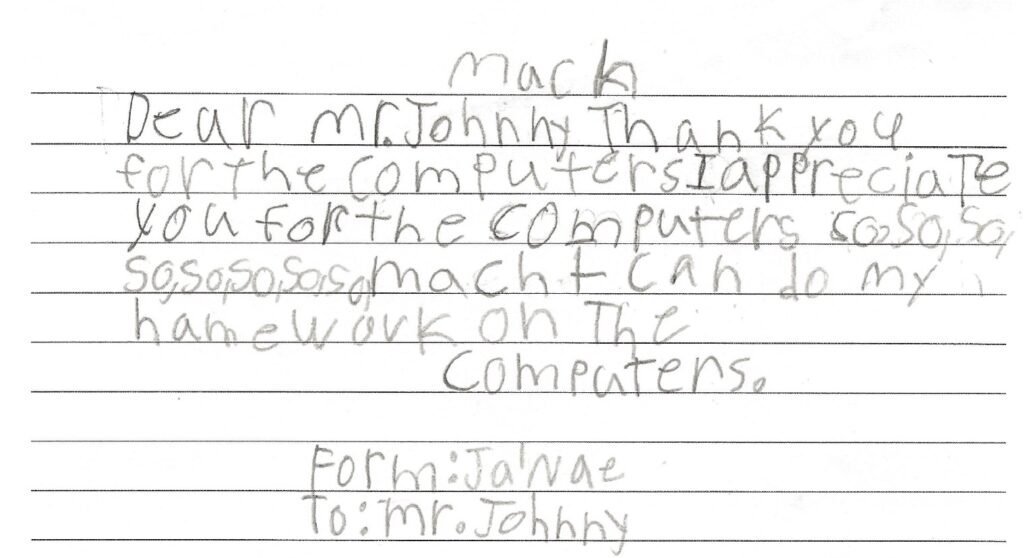 mack
Dear mr. Johnny Thank you
for the computers I appreciaTe
you for the computers so, so, so,
so, so, so, so, so, mach I can do my
hamework on The
computers.
Form: Ja'Nae
To: mr. Johnny